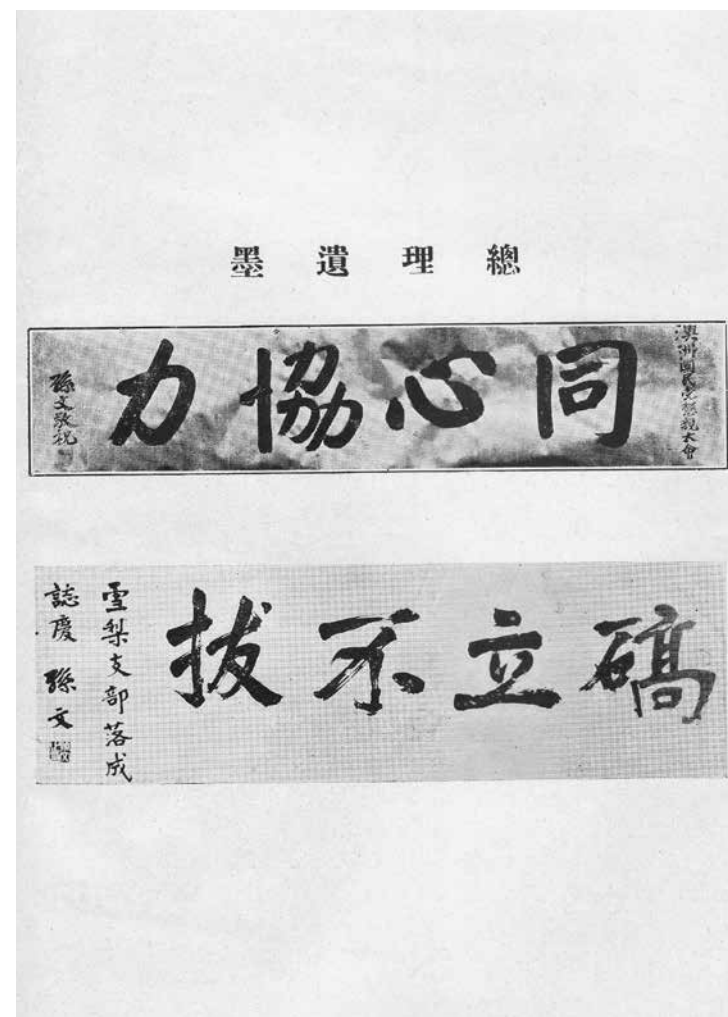 總理遺墨
澳洲國民党懇親大會
同心協力
孫文敬祝
碻立不拔
雪梨支部落成
誌慶 孫文